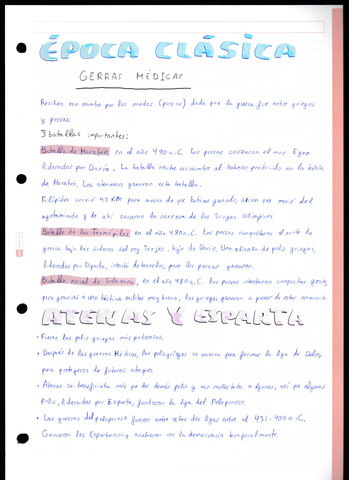 ÉPOCA CLÁSICA
GERRAS MÉDICAS
Reciben ese nombre por los medos (persas) dado que la guerra fue entre griegos
y persas.
3 batallas importantes:
Batalla de Maratón, en el año 490 a.C. los persas cruzaron el mar Egeo
liderados por Darío. La batalla recibe ese nombre al haberse producido en la bahía
de Maratón. Los atenienses ganaron esta batalla.
Filípides corrió 42 KM para avisar de que habían ganado, dicen que murió del
agotamiento y de ahí sacaron la carrera de los Juegos Olímpicos.
Batalla de las Termópilas en el año 480 a.C. Los persas conquistaron el norte de
grecia bajo las órdenes del rey Jerjes, hijo de Darío. Una alianza de polis griegas,
lideradas por Esparta, intentó detenerles, pero los persas ganaron.
Batalla naval de Salamina, en el año 480 a.C. los persas intentaron conquistar grecia,
pero gracias a una táctica militar muy buena, los griegos ganaron a pesar de estar en minoría.
ATENAS Y ESPARTA
• Fueron las polis griegas más poderosas.
• Después de las guerras Médicas, las polis griegas se unieron para formar la liga de Delos,
para protegerse de futuros ataques.
• Atenas se beneficiaba más que las demás polis y eso molestaba a algunas, así que algunas
Polis, lideradas por Esparta, fundaron la liga del Peloponeso.
• Las guerras del peloponeso fueron entre estas dos ligas entre el 431-404 a.C.
Ganaron los Espartanos y acabaron con la democracia temporalmente.